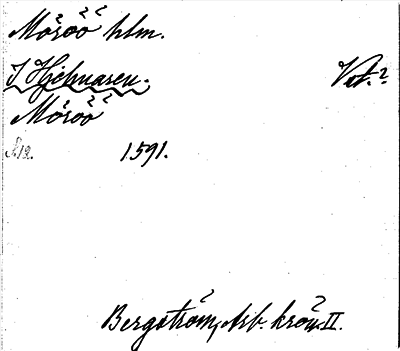 Möröö hlm.
I Hjelmaren. Vet. ?
Möröö
S. 12. 1591.
Bergström, Arb. krön. II.